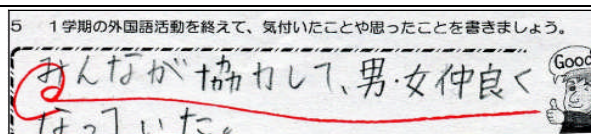 5 1学期の外国語活動を終えて、気付いたことや思ったことを書きましょう。
みんなが協力して、男・女仲良く
なっていた。
Good